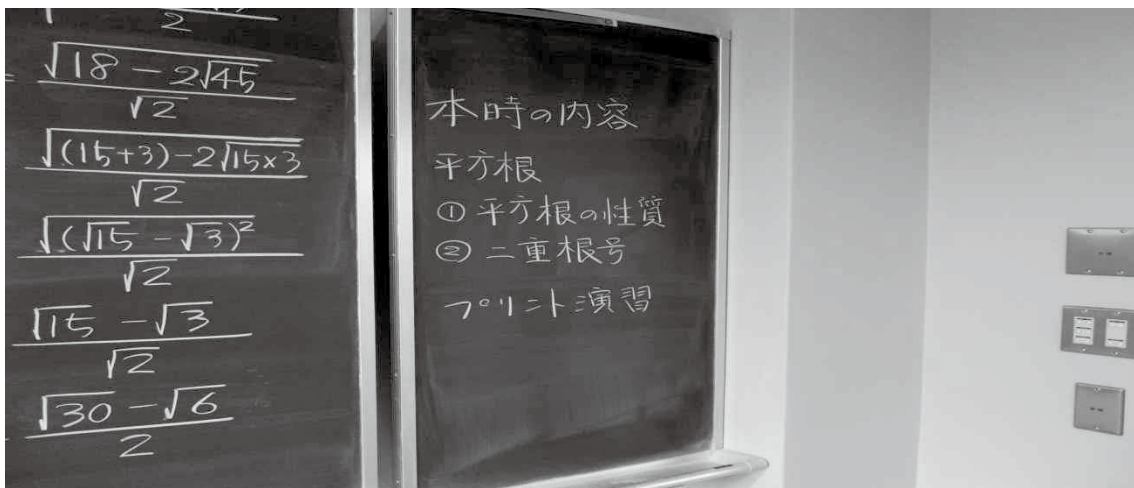 2
√(18 - 2√45) / √2
√((15+3) - 2√(15×3)) / √2
√((√15 - √3)²) / √2
(√15 - √3) / √2
(√30 - √6) / 2
本時の内容
平方根
① 平方根の性質
② 二重根号
プリント演習